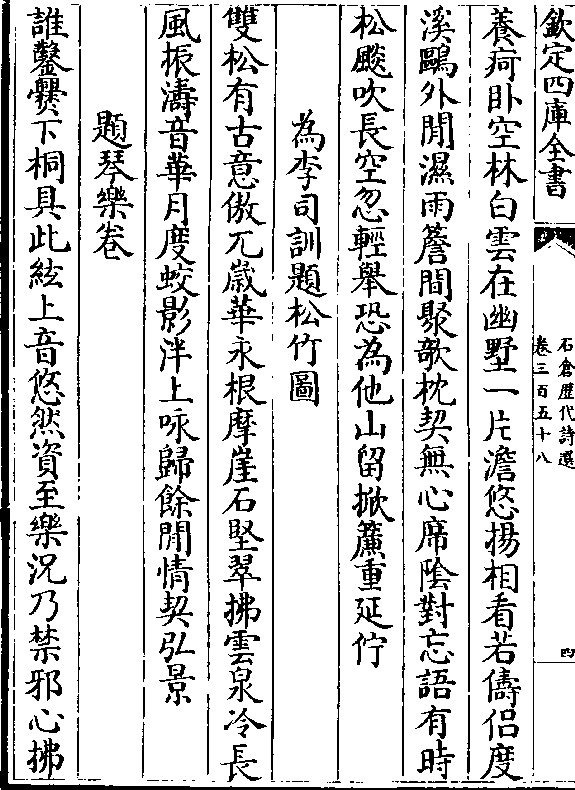 欽定四庫全書
石倉歷代詩選
卷三百五十八
四
養疴卧空林白雲在幽墅一片澹悠揚相看若儔侣度
溪鷗外閒濕雨簷間聚欹枕契無心席陰對忘語有時
松飈吹長空忽輕舉恐為他山留掀簾重延佇
為李司訓題松竹圖
雙松有古意傲兀歲華永根摩崖石堅翠拂雲泉冷長
風振濤音華月度蛟影泮上咏歸餘閒情契弘景
題琴樂卷
誰鑿爨下桐具此絃上音悠然資至樂況乃禁邪心拂